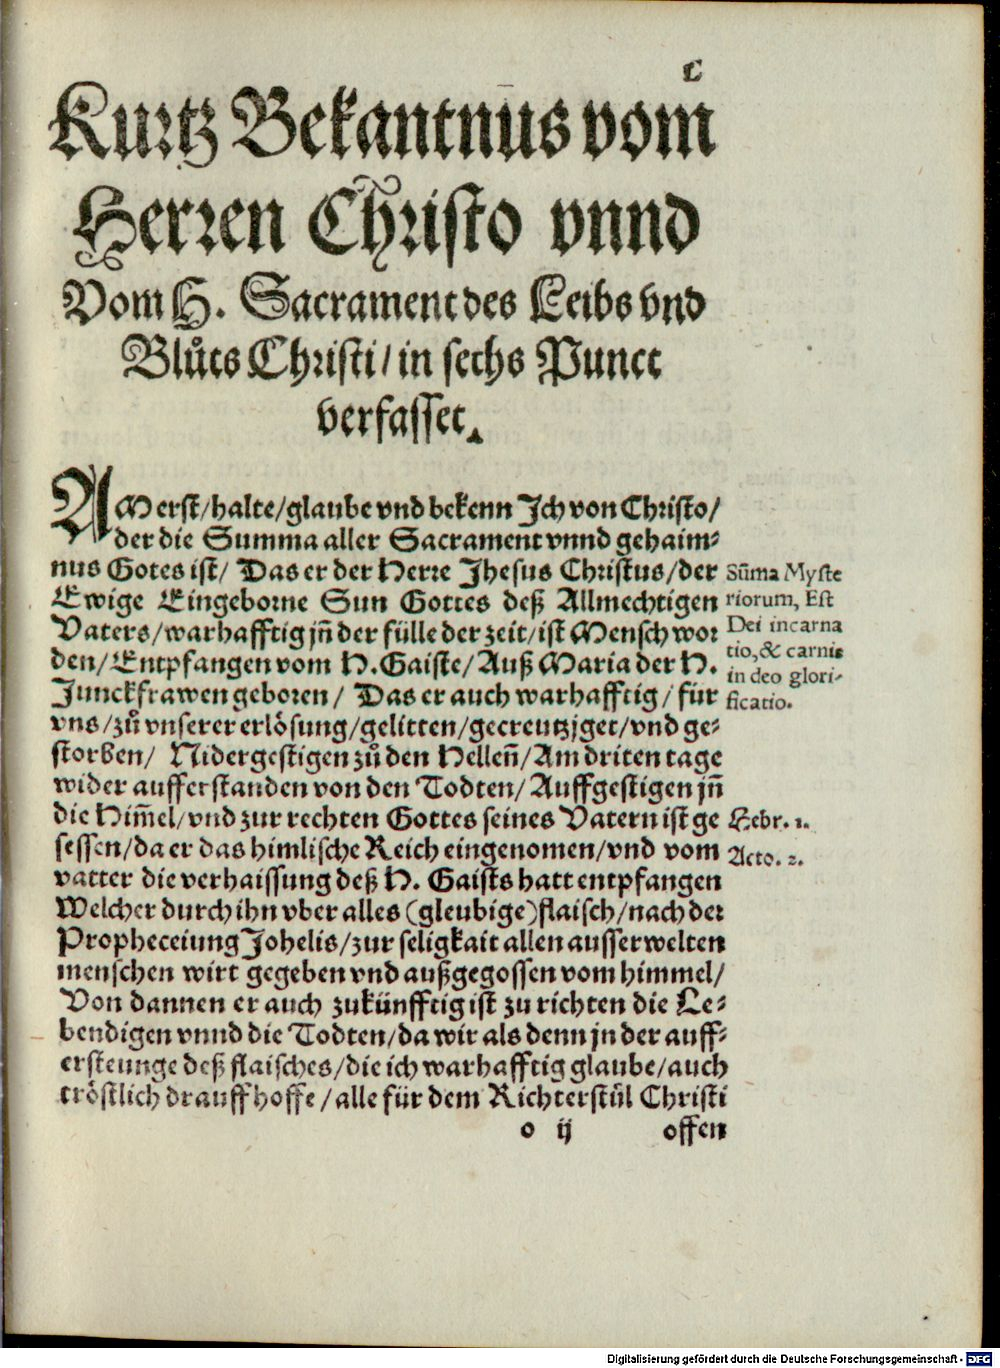 C
Kurtz Bekantnus vom
Herren Christo vnnd
Vom H. Sacrament des Leibs vnd
Blůts Christi/ in sechs Punct
verfasset.
AM erst/halte/glaube vnd bekenn Ich von Christo/
der die Summa aller Sacrament vnnd gehaim⸗
nus Gotes ist/ Das er der Herre Jhesus Christus/der
Ewige Eingeborne Sun Gottes deß Allmechtigen
Vaters/warhafftig jn̄ der fülle der zeit/ist Mensch wor
den/Entpfangen vom H. Gaiste/Auß Maria der H.
Junckfrawen geboren/ Das er auch warhafftig/für
vns/zů vnserer erlösung/gelitten/gecreutzjget/vnd ge⸗
storben/ Nidergestigen zů den Hellen̄/Am driten tage
wider aufferstanden von den Todten/Auffgestigen jn̄
die Him̄el/vnd zur rechten Gottes seines Vatern ist ge
sessen/da er das himlische Reich eingenomen/vnd vom
vatter die verhaissung deß H. Gaists hatt entpfangen
Welcher durch ihn vber alles (gleubige)flaisch/nach der
Propheceiung Johelis/zur seligkait allen ausserwelten
menschen wirt gegeben vnd außgegossen vom himmel/
Von dannen er auch zukünfftig ist zu richten die Le⸗
bendigen vnnd die Todten/da wir als denn jn der auff⸗
ersteunge deß flaisches/die ich warhafftig glaube/auch
tröstlich drauff hoffe/alle für dem Richterstůl Christi
o ij offen
Sūma Myste
riorum, Est
Dei incarna
tio, & carnis
in deo glori-
ficatio.
Hebr. 1.
Acto. 2.
Digitalisierung gefördert durch die Deutsche Forschungsgemeinschaft - DFG